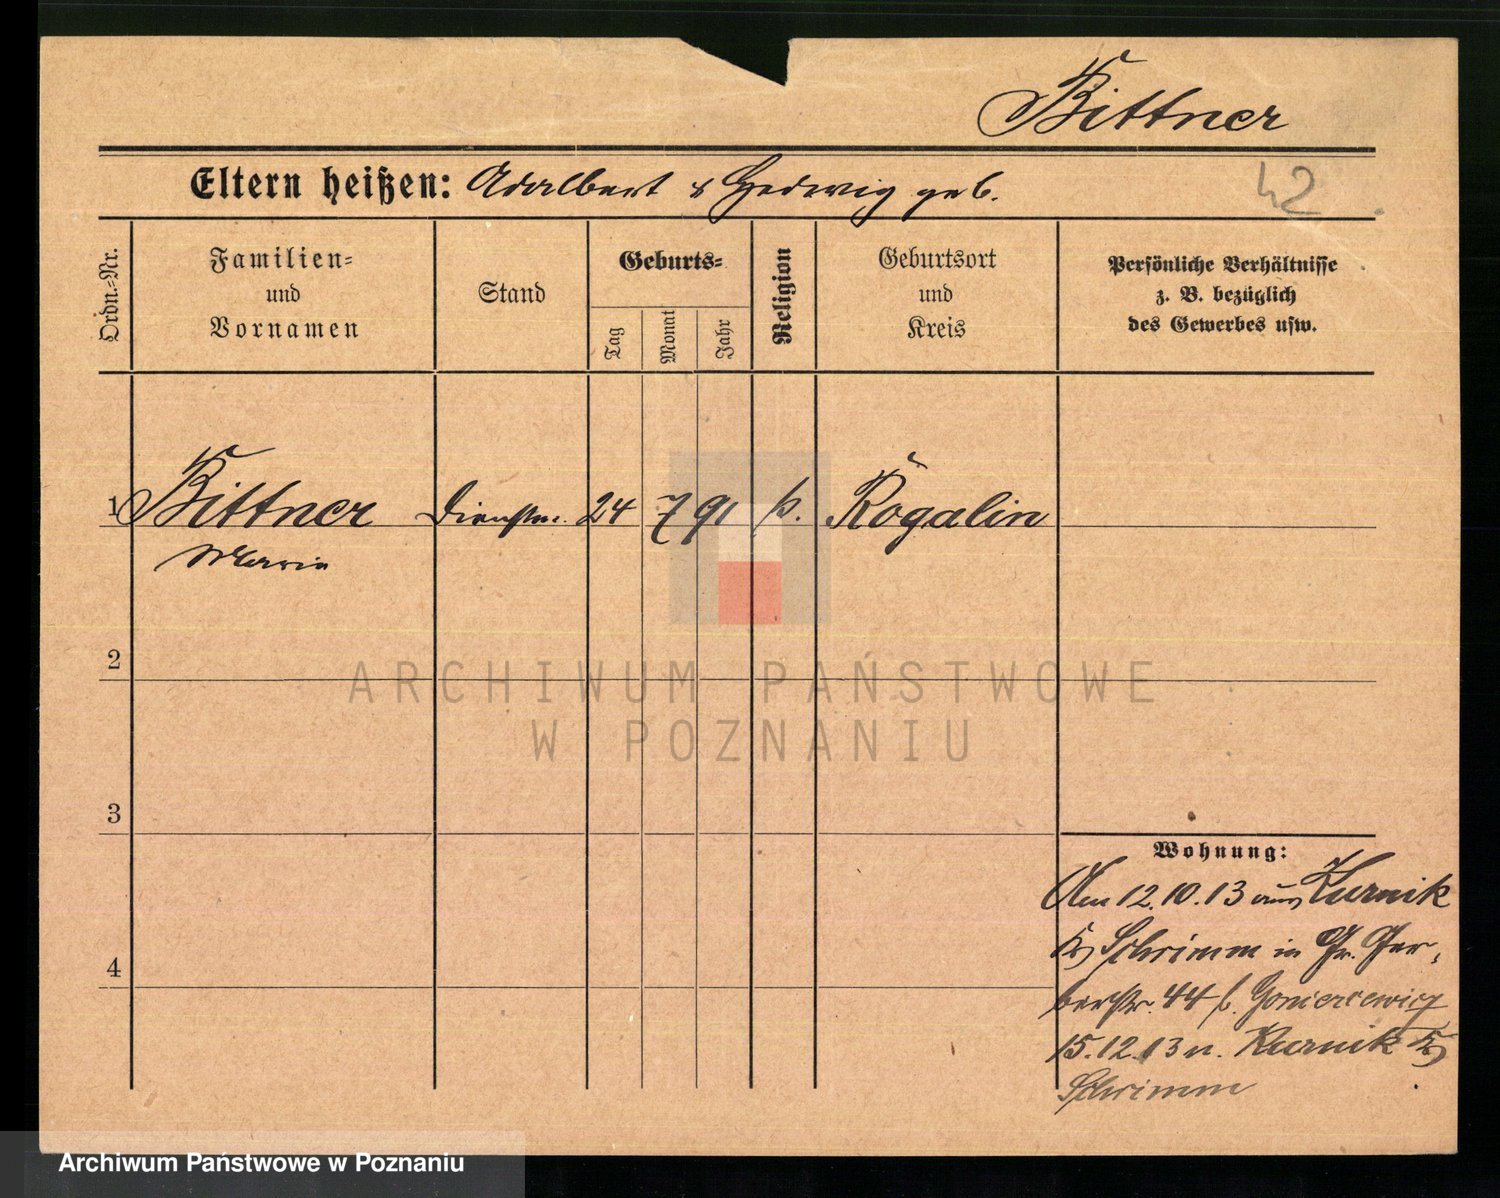 Bittner
Eltern heißen: Adalbert & Hedwig geb.
42
Ordn.-Nr.
Familien-
und
Vornamen
Stand
Geburts-
Tag
Monat
Jahr
Religion
Geburtsort
und
Kreis
Persönliche Verhältnisse
z. B. bezüglich
des Gewerbes usw.
1 Bittner Dienstm. 24 7 91 k. Rogalin
Maria
2
3
4
Wohnung:
Am 12.10.13 aus Kurnik
Kr. Schrimm in Gr. Ger-
berstr. 44 b.
15.12.13 n. Kurnik Kr.
Schrimm
ARCHIWUM PAŃSTWOWE
W POZNANIU
Archiwum Państwowe w Poznaniu